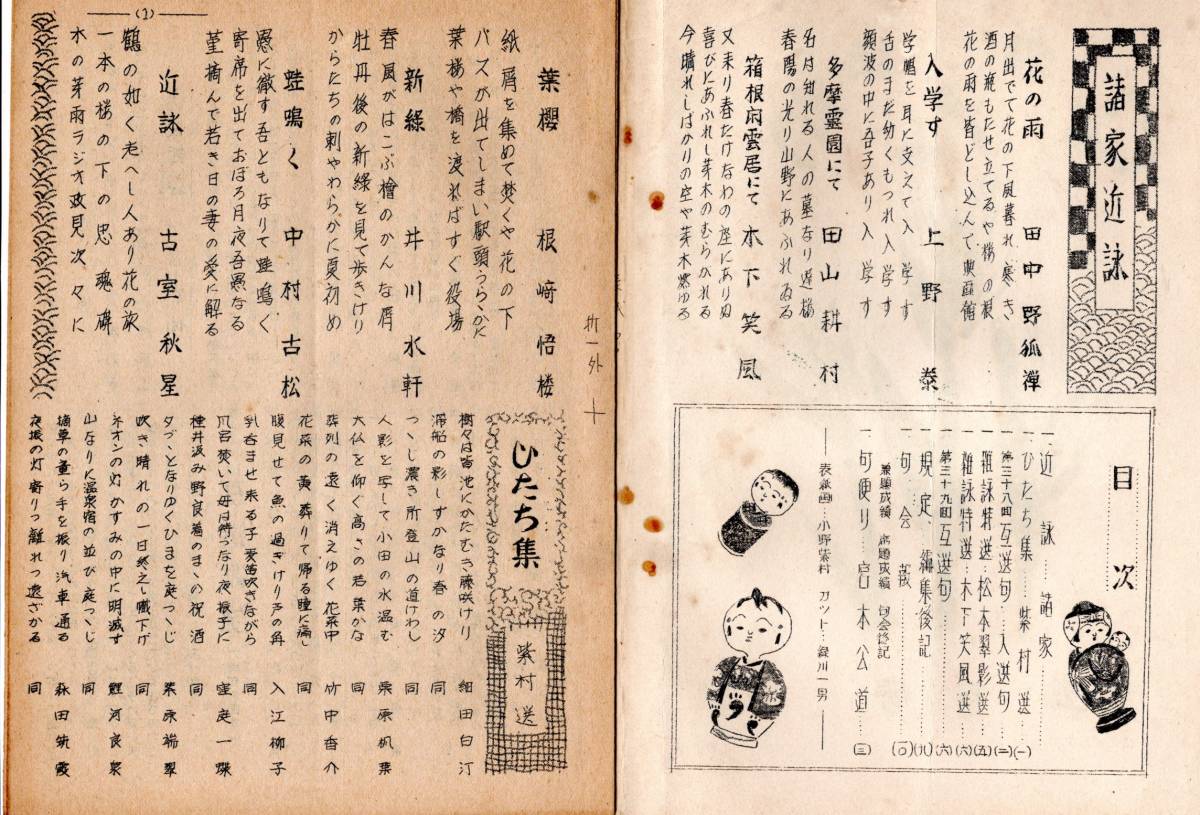 諸家近詠
花の雨 田中野狐禅
月出でて花の下風暮れ寒き
酒の瓶もたせ立てるや桜の根
花の雨を皆どし込んで映画館
入学す 上野泰
学帽を耳に支えて入学す
舌のまだ幼くもつれ入学す
顔波の中に吾子あり入学す
多摩霊園にて 田山耕村
名は知れる人の墓なり遅桜
春陽の光り山野にあふれゐる
箱根府雲居にて 木下笑風
又来り春たけなわの座にありぬ
喜びにあふれし芽木のむらがれる
今晴れしばかりの空や芽木寒ゆる
目次
一、近詠……諸家(一)
一、ひたち集……紫村選(一)
一、第三十八回互選句……入選句(二)
一、雑詠特選……松本翠影選(五)
一、雑詠特選……木下笑風選(六)
一、第三十九回互選句(六)
一、規定、編集後記(九)
一、句会報(一〇)
兼題成績 席題成績 句会後記
一、句便り……宮木公道(三)
——表紙画…小野紫村 カツト…緑川一男——
(1)
葉櫻 根崎悟楼
紙屑を集めて焚くや花の下
バスが出てしまい駅頭うらゝかに
葉桜や橋を渡ればすぐ役場
新緑 井川水軒
春風がはこぶ檜のかんな屑
牡丹後の新緑を見て歩きけり
からたちの刺やわらかに夏初め
蛙鳴く 中村古松
愚に徹す吾ともなりて蛙鳴く
寄席を出ておぼろ月夜吾愚なる
菫摘んで若き日の妻の愛に解る
近詠 古室秋星
鶴の如く老へし人あり花の旅
一本の桜の下の忠魂碑
木の芽雨ラジオ政見次々に
折一外
ひたち集
紫村選
樹々は皆池にかたむき藤咲けり 細田白汀
滞船の影しずかなり春の汐 同
つゝじ濃き所登山の道けわし 同
人影を写して小田の水温む 栗原帆葉
大仏を仰ぐ高さの若葉かな 同
葬列の遠く消えゆく花菜中 竹中香介
花菜の黄葬りて帰る瞳に痛し 同
腹見せて魚の過ぎけり芦の角 入江柳子
乳呑ませ来る子麦笛吹きながら 同
爪宮狭いて毋は待つなり夜振子に 窪庭一煤
種井汲み野良着のまゝの祝酒 同
夕づゝとなりゆくひまを庭つゝじ 栗原瑞翠
吹き晴れの一日終えし幟下げ 同
ネオンの灯かすみの中に明滅す 鯉河良泉
山なりに温泉宿の並び庭つゝじ 同
摘草の童ら手を振り汽車通る 森田筑霞
夜振の灯寄りつ離れつ遠ざかる 同